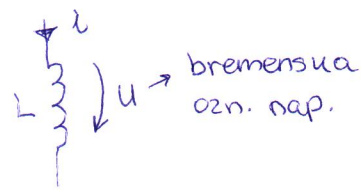 i
L
u → bremensua
ozn. nap.